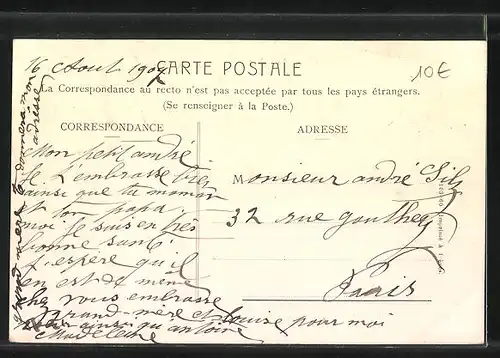 16 Aout 1907
CARTE POSTALE
10€
La Correspondance au recto n'est pas acceptée par tous les pays étrangers.
(Se renseigner à la Poste.)
CORRESPONDANCE
ADRESSE
Mon petit andré
je t'embrasse
ainsi que ta maman
et ton papa
moi je suis en très
bonne santé
j'espère qu'il
en est de même
chez vous embrasse
grand-mère et Louise pour moi
ainsi qu'antoine
Madeleine
grand mère te donnera mon
adresse
Monsieur andré
32 rue gauthey
Paris